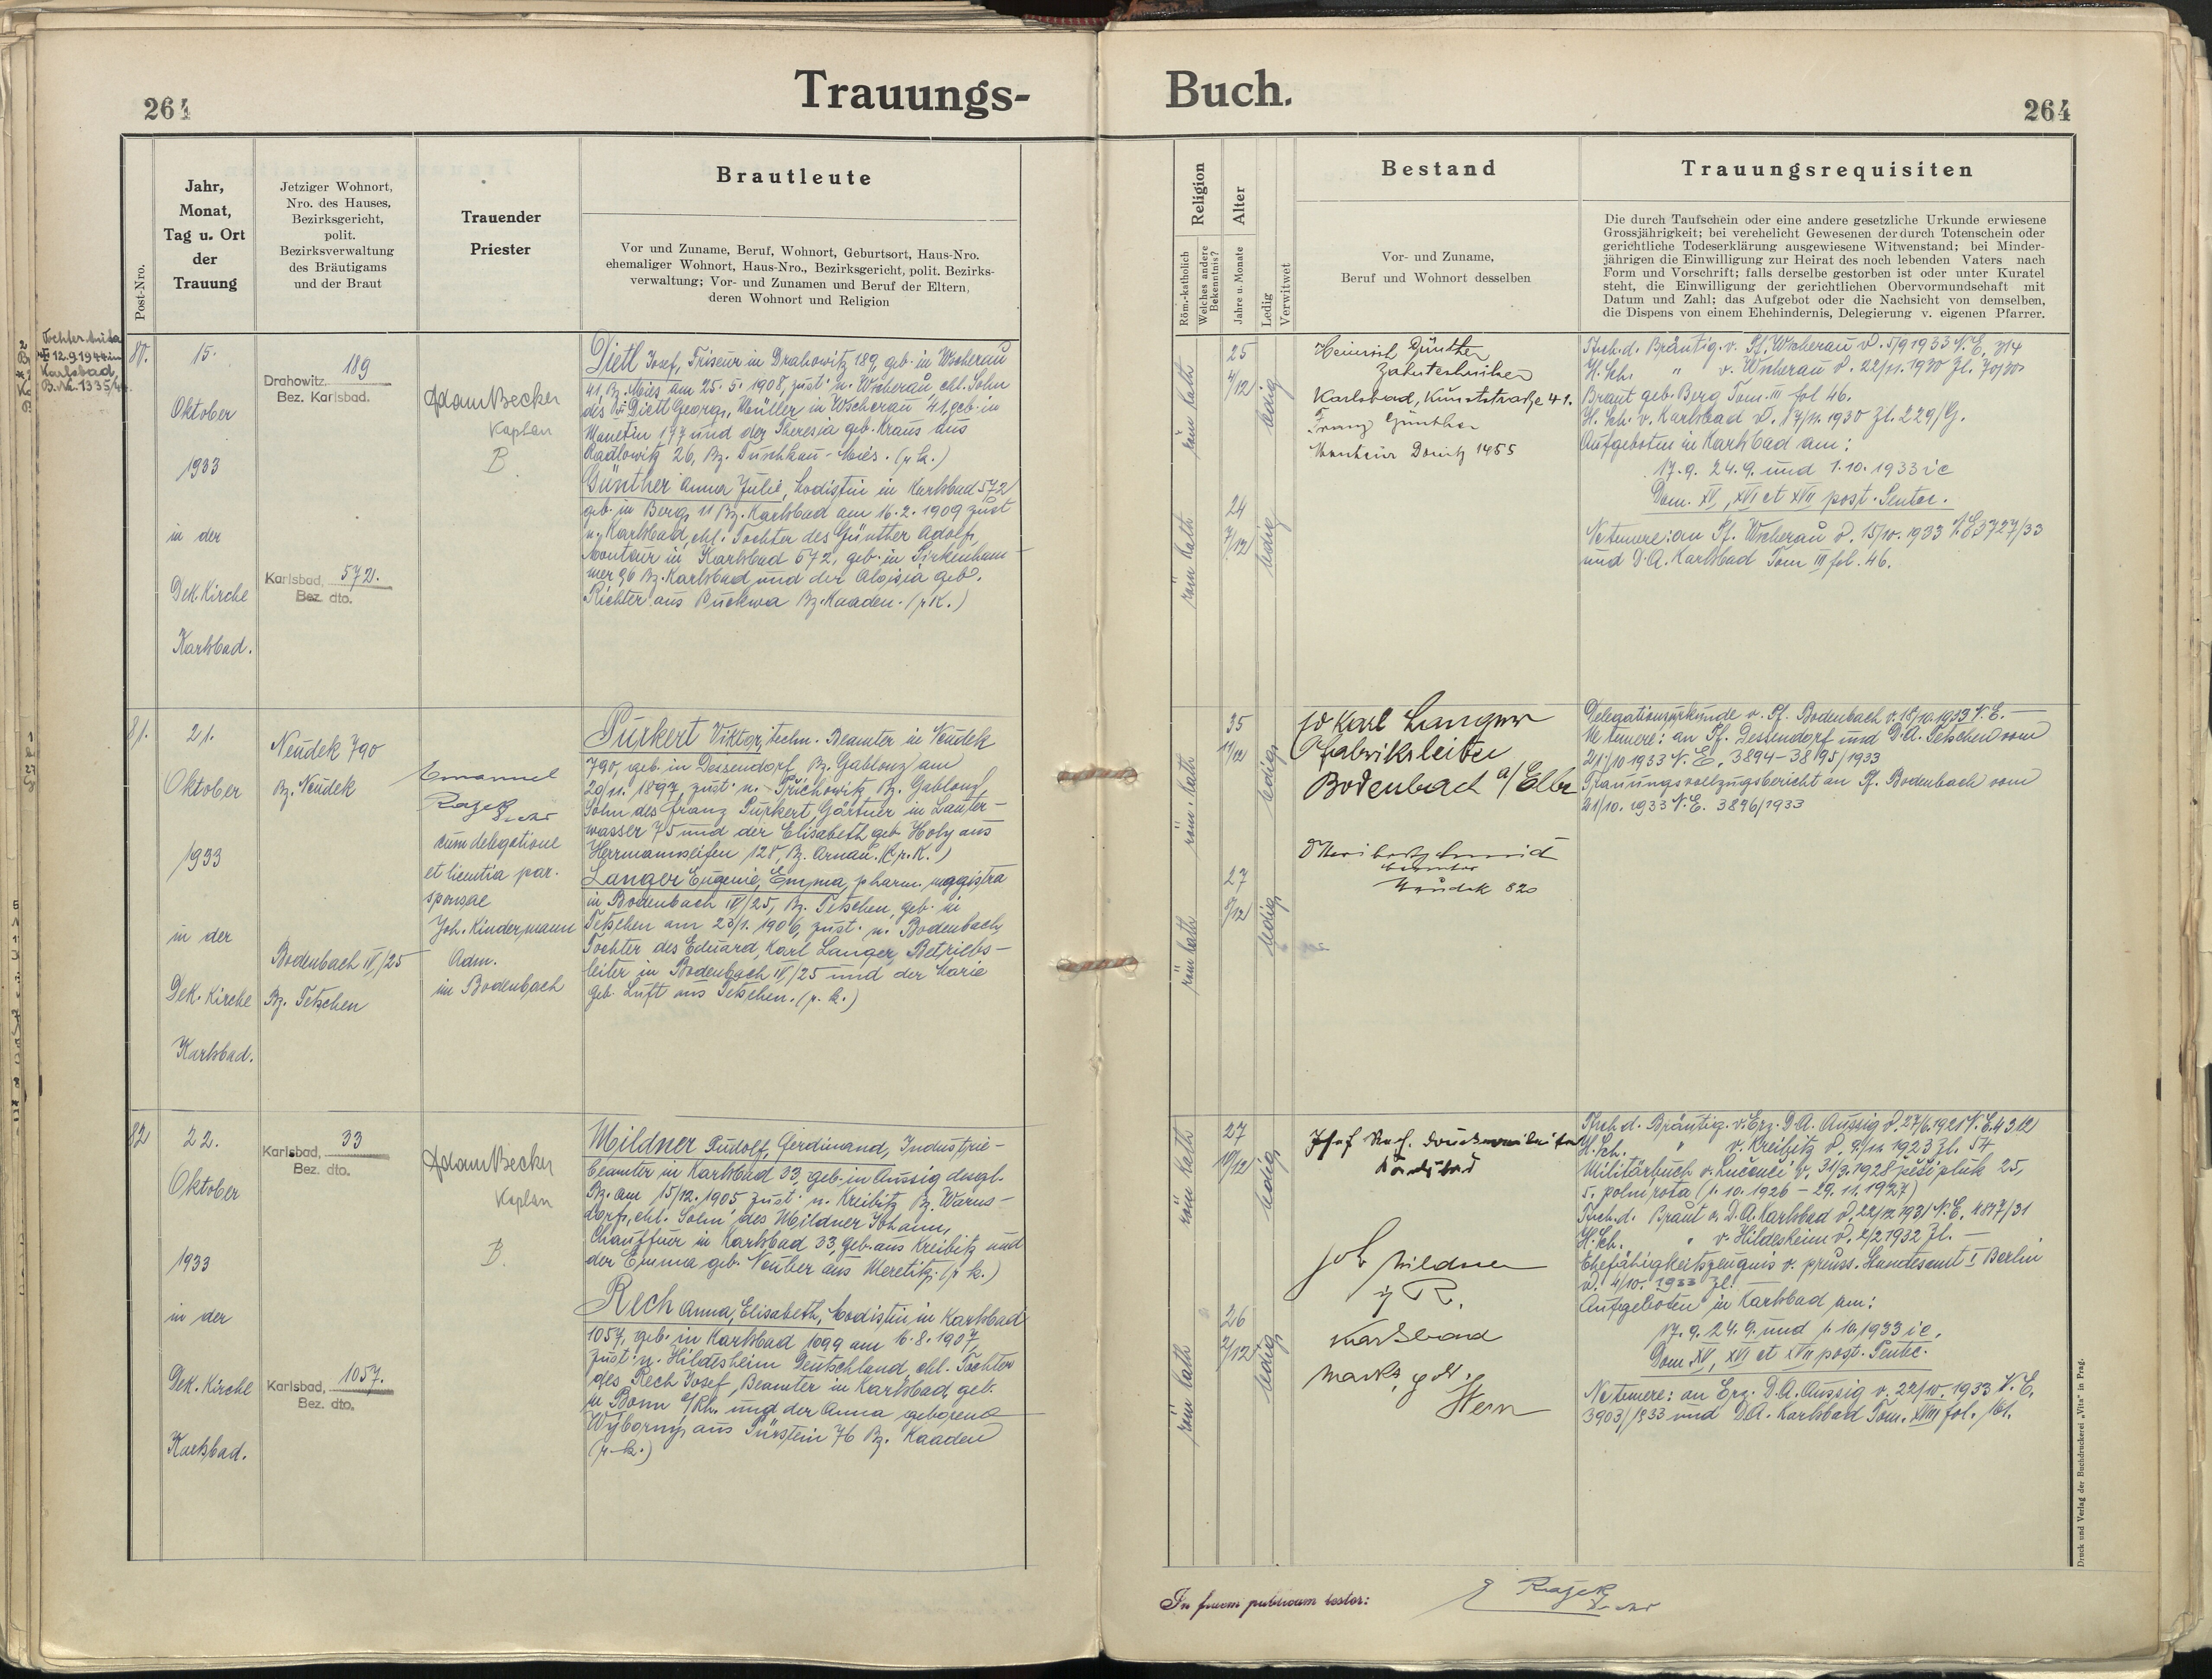 264
Trauungs-
Post-Nro.
Jahr,
Monat,
Tag u. Ort
der
Trauung
Jetziger Wohnort,
Nro. des Hauses,
Bezirksgericht,
polit.
Bezirksverwaltung
des Bräutigams
und der Braut
Trauender
Priester
Brautleute
Vor und Zuname, Beruf, Wohnort, Geburtsort, Haus-Nro.
ehemaliger Wohnort, Haus-Nro., Bezirksgericht, polit. Bezirks-
verwaltung; Vor- und Zunamen und Beruf der Eltern,
deren Wohnort und Religion
12.9.1944 in
Karlsbad,
80.
15.
Oktober
1933
in der
Dek. Kirche
Karlsbad.
189
Drahowitz,
Bez. Karlsbad.
Karlsbad, 572.
Bez. dto.
Adam Becker
Kaplan
B
Dietl Josef, Friseur in Drahowitz 189, geb. in Wscherau
41, Bz. Mies am 25.5.1908, zust. n. Wscherau, ehl. Sohn
des Dietl Georg, Müller in Wscherau 41, geb. in
Manetin 177 und der Theresia geb. Kraus aus
Radlowitz 26, Bz. Tuschkau-Mies. (r.k.)
Günther Anna Julie, Modistin in Karlsbad 572
geb. in Berg 11 Bz. Karlsbad am 16.2.1909 zust
n. Karlsbad, ehl. Tochter des Günther Adolf,
Monteur in Karlsbad 572, geb. in Pirkenham-
mer 96 Bz. Karlsbad und der Aloisia geb.
Richter aus Buckwa Bz. Kaaden. (r.k.)
81.
21.
Oktober
1933
in der
Dek. Kirche
Karlsbad.
Neudek 790
Bz. Neudek
Bodenbach IV/25
Bz. Tetschen
Emanuel
Rajek
cum delegatione
et licentia par.
sponsae
Joh. Kindermann
Adm.
in Bodenbach
Purkert Viktor, techn. Beamter in Neudek
790, geb. in Dessendorf, Bz. Gablonz am
20/11. 1897 zust. n. Přichowitz Bz. Gablonz,
Sohn des Franz Purkert, Gärtner in Lauter-
wasser 75 und der Elisabeth geb. Holy aus
Herrmannseifen 128, Bz. Arnau. (r.k.)
Langer Eugenie, Emma, pharm. magistra
in Bodenbach IV/25, Bz. Tetschen, geb. in
Tetschen am 23/1. 1906, zust. n. Bodenbach,
Tochter des Eduard, Karl Langer, Betriebs-
leiter in Bodenbach IV/25 und der Marie
geb. Luft aus Tetschen. (r.k.)
82
22.
Oktober
1933
in der
Dek. Kirche
Karlsbad.
Karlsbad, 33
Bez. dto.
Karlsbad, 1057.
Bez. dto.
Adam Becker
Kaplan
B.
Mildner Rudolf, Ferdinand, Industrie-
beamter in Karlsbad 33, geb. in Aussig desgl.
Bz. am 15/12. 1905 zust. n. Kreibitz Bz. Warns-
dorf, ehl. Sohn des Mildner Johann,
Chauffeur in Karlsbad 33, geb. aus Kreibitz und
der Emma geb. Neuber aus Meretitz. (r.k.)
Rech Anna, Elisabeth, Modistin in Karlsbad
1057, geb. in Karlsbad 1099 am 16.8.1907,
zust. n. Hildesheim Deutschland, ehl. Tochter
des Rech Josef, Beamter in Karlsbad, geb.
in Bonn a/Rh. und der Anna geborene
Wyborny aus Pürstein 76 Bz. Kaaden
(r.k.)
Buch.
264
Religion
Röm.-katholisch
Welches andere
Bekenntnis?
Alter
Jahre u. Monate
Ledig
Verwitwet
Bestand
Vor- und Zuname,
Beruf und Wohnort desselben
Trauungsrequisiten
Die durch Taufschein oder eine andere gesetzliche Urkunde erwiesene
Grossjährigkeit; bei verehelicht Gewesenen der durch Totenschein oder
gerichtliche Todeserklärung ausgewiesene Witwenstand; bei Minder-
jährigen die Einwilligung zur Heirat des noch lebenden Vaters nach
Form und Vorschrift; falls derselbe gestorben ist oder unter Kuratel
steht, die Einwilligung der gerichtlichen Obervormundschaft mit
Datum und Zahl; das Aufgebot oder die Nachsicht von demselben,
die Dispens von einem Ehehindernis, Delegierung v. eigenen Pfarrer.
röm kath
25
4/12
ledig
röm kath
24
7/12
ledig
Heinrich Günther
Zahntechniker
Karlsbad, Kunststraße 41.
Franz Günther
Monteur Donitz 1455
Tsch. d. Bräutig. v. Pf. Wscherau d. 5/9 1933 N.E. 314
H. Sch. " v. Wscherau d. 22/11. 1930 Zl. 70/30
Braut geb. Berg Tom. III fol 46.
H. Sch. v. Karlsbad d. 17/11. 1930 Zl. 229/G.
Aufgeboten in Karlsbad am:
17.9. 24.9. und 1.10.1933 i e
Dom. XV, XVI et XVII post. Pentec.
Ne temere: an Pf. Wscherau d. 15/10. 1933 N.E. 3727/33
und D.A. Karlsbad Tom III fol. 46.
röm. kath
35
11/12
ledig
röm kath
27
8/12
ledig
Ed Karl Langer
Fabriksleiter
Bodenbach a/Elbe
Neudek 820
Delegationsurkunde v. Pf. Bodenbach v. 18/10.1933 N.E. —
Ne temere: an Pf. Dessendorf und D.A. Tetschen vom
21/10 1933 N.E. 3894-3895/1933
Trauungsvollzugsbericht an Pf. Bodenbach vom
21/10. 1933 N.E. 3896/1933
röm kath
27
10/12
ledig
röm kath
26
2/12
ledig
Josef Rech
Karlsbad
Joh Mildner
Karlsbad
Stern
Tsch. d. Bräutig. v. Erz. D.A. Aussig d. 27/6.1921 N.E. 4312
H. Sch. " v. Kreibitz d. 9/11. 1923 Zl. 54
Militärbuch v. Lučenec v. 31/3.1928 pěší pluk 25,
5. polní rota (1.10.1926 - 29.11.1927)
Tsch. d. Braut v. D.A. Karlsbad d. 22/12 1931 N.E. 4877/31
H. Sch. " v. Hildesheim d. 2/2 1932 Zl. —
Ehefähigkeitszeugnis v. preuss. Standesamt I Berlin
d. 4/10. 1933 Zl.
Aufgeboten in Karlsbad am:
17.9. 24.9. und 1.10.1933 i e.
Dom. XV, XVI et XVII post. Pentec.
Ne temere: an Erz. D.A. Aussig v. 22/10. 1933 N.E.
3903/1933 und D.A. Karlsbad Tom. XVIII fol. 161.
In fidem publicam testor:
E Rajek
Druck und Verlag der Buchdruckerei „Vita" in Prag.